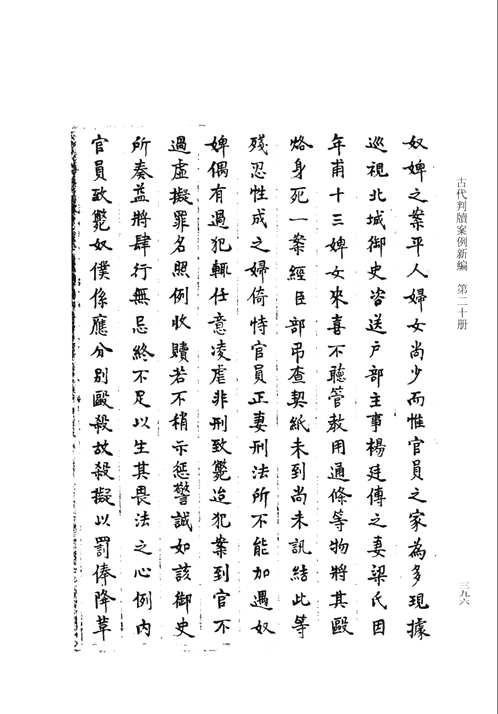 古代判牘案例新編　第二十册
三九六
奴婢之案平人婦女尚少而惟官員之家為多現據
巡視北城御史咨送户部主事楊廷傅之妻梁氏因
年甫十三婢女來喜不聽管教用通條等物將其毆
烙身死一案經臣部弔查契紙未到尚未訊結此等
殘忍性成之婦倚恃官員正妻刑法所不能加遇奴
婢偶有過犯輒任意凌虐非刑致斃迨犯案到官不
過虛擬罪名照例收贖若不稍示懲警誠如該御史
所奏益將肆行無忌終不足以生其畏法之心例内
官員致斃奴僕係應分別毆殺故殺擬以罰俸降革